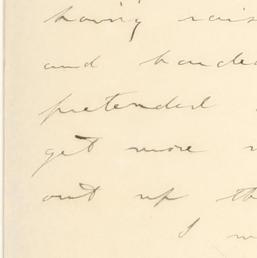 having rais
and hande
pretended
get more
out up th
I